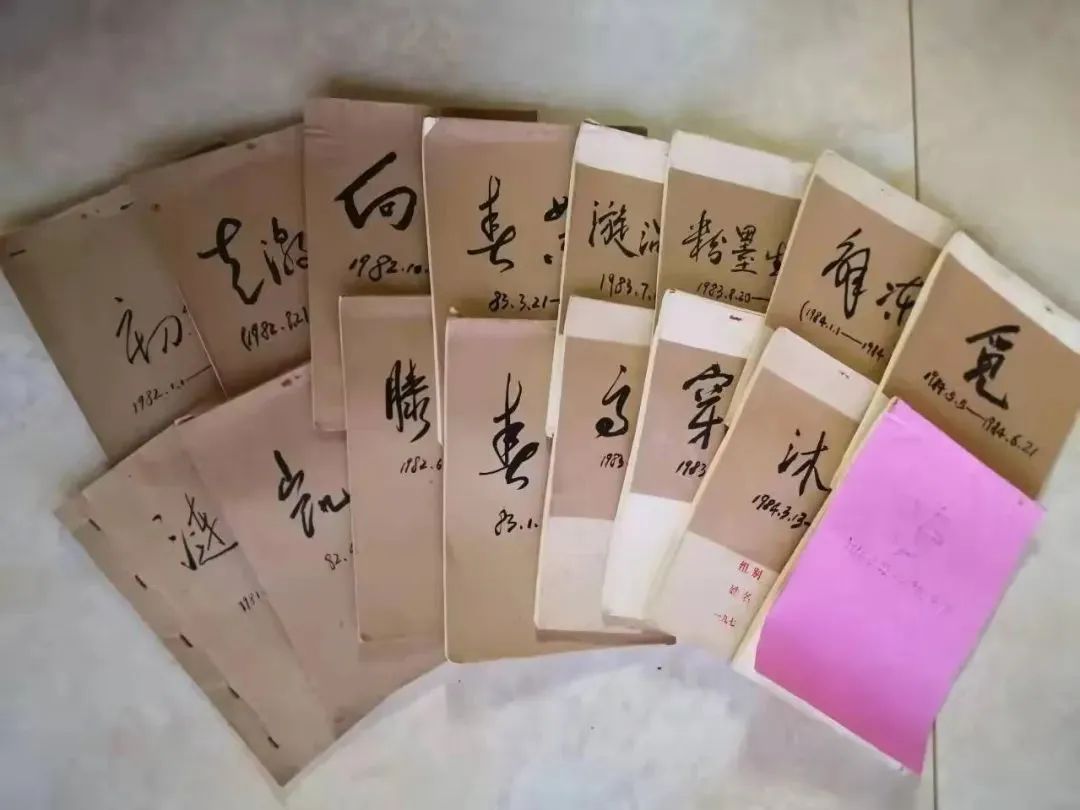 初
1982.1.1—
走激
(1982.8.21
向
1982.10.
春
83.3.21—
漩涡
1983.7.
粉墨生
1983.8.20—
解冻
(1984.1.1—1984
觅
1984.5.5—1984.6.21
涟
1981.
凯
82.
滕
1982.6
春
83.1.
高
1983
穿
1983
沐
1984.3.13—
组别
姓名
一九七